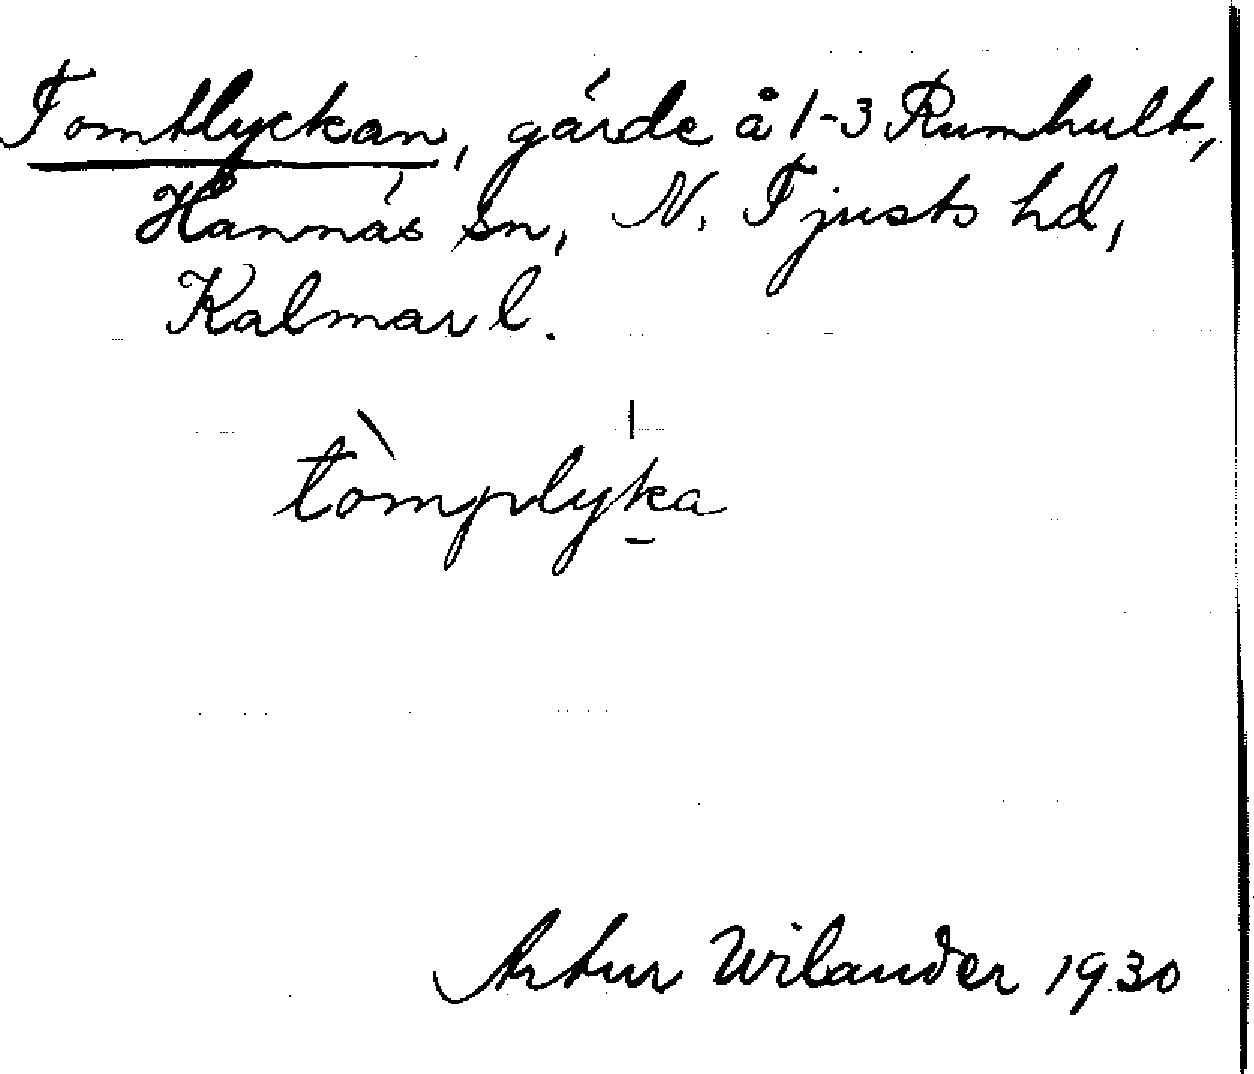 Tomtlyckan, gärde å 1-3 Rumhult,
Hannäs sn, N. Tjusts hd,
Kalmar l.
tòmplyka
Artur Wilander 1930